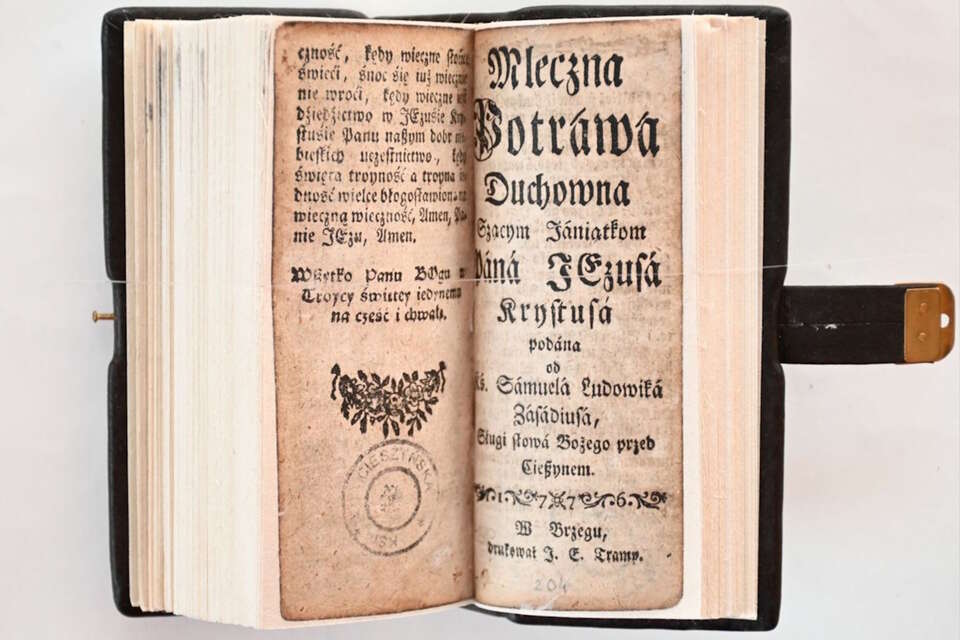 czność, kędy wieczne słońce
świeci, snoc się iuż wiecznie
nie wroci, kędy wieczne
dziedzictwo w JEzusie Kry-
stusie Panu naszym dobr
bieskich uczestnictwo, kędy
święta troyność a troyna
dność wielce błogosławiona na
wieczną wieczność, Amen, Pa-
nie JEzu, Amen.
Wszytko Panu BOgu w
Troycy świętey iedynemu
na cześć i chwałę.
CIESZYŃSKA
KSI
Mleczna
Potráwá
Duchowna
Szącym Jániątkom
Páná JEzusá
Krystusá
podána
od
Xś. Sámuelá Ludowiká
Zásádiusá,
Sługi słowá Bożego przed
Cieszynem.
1776
W Brzegu,
drukował J. E. Tramp.
204